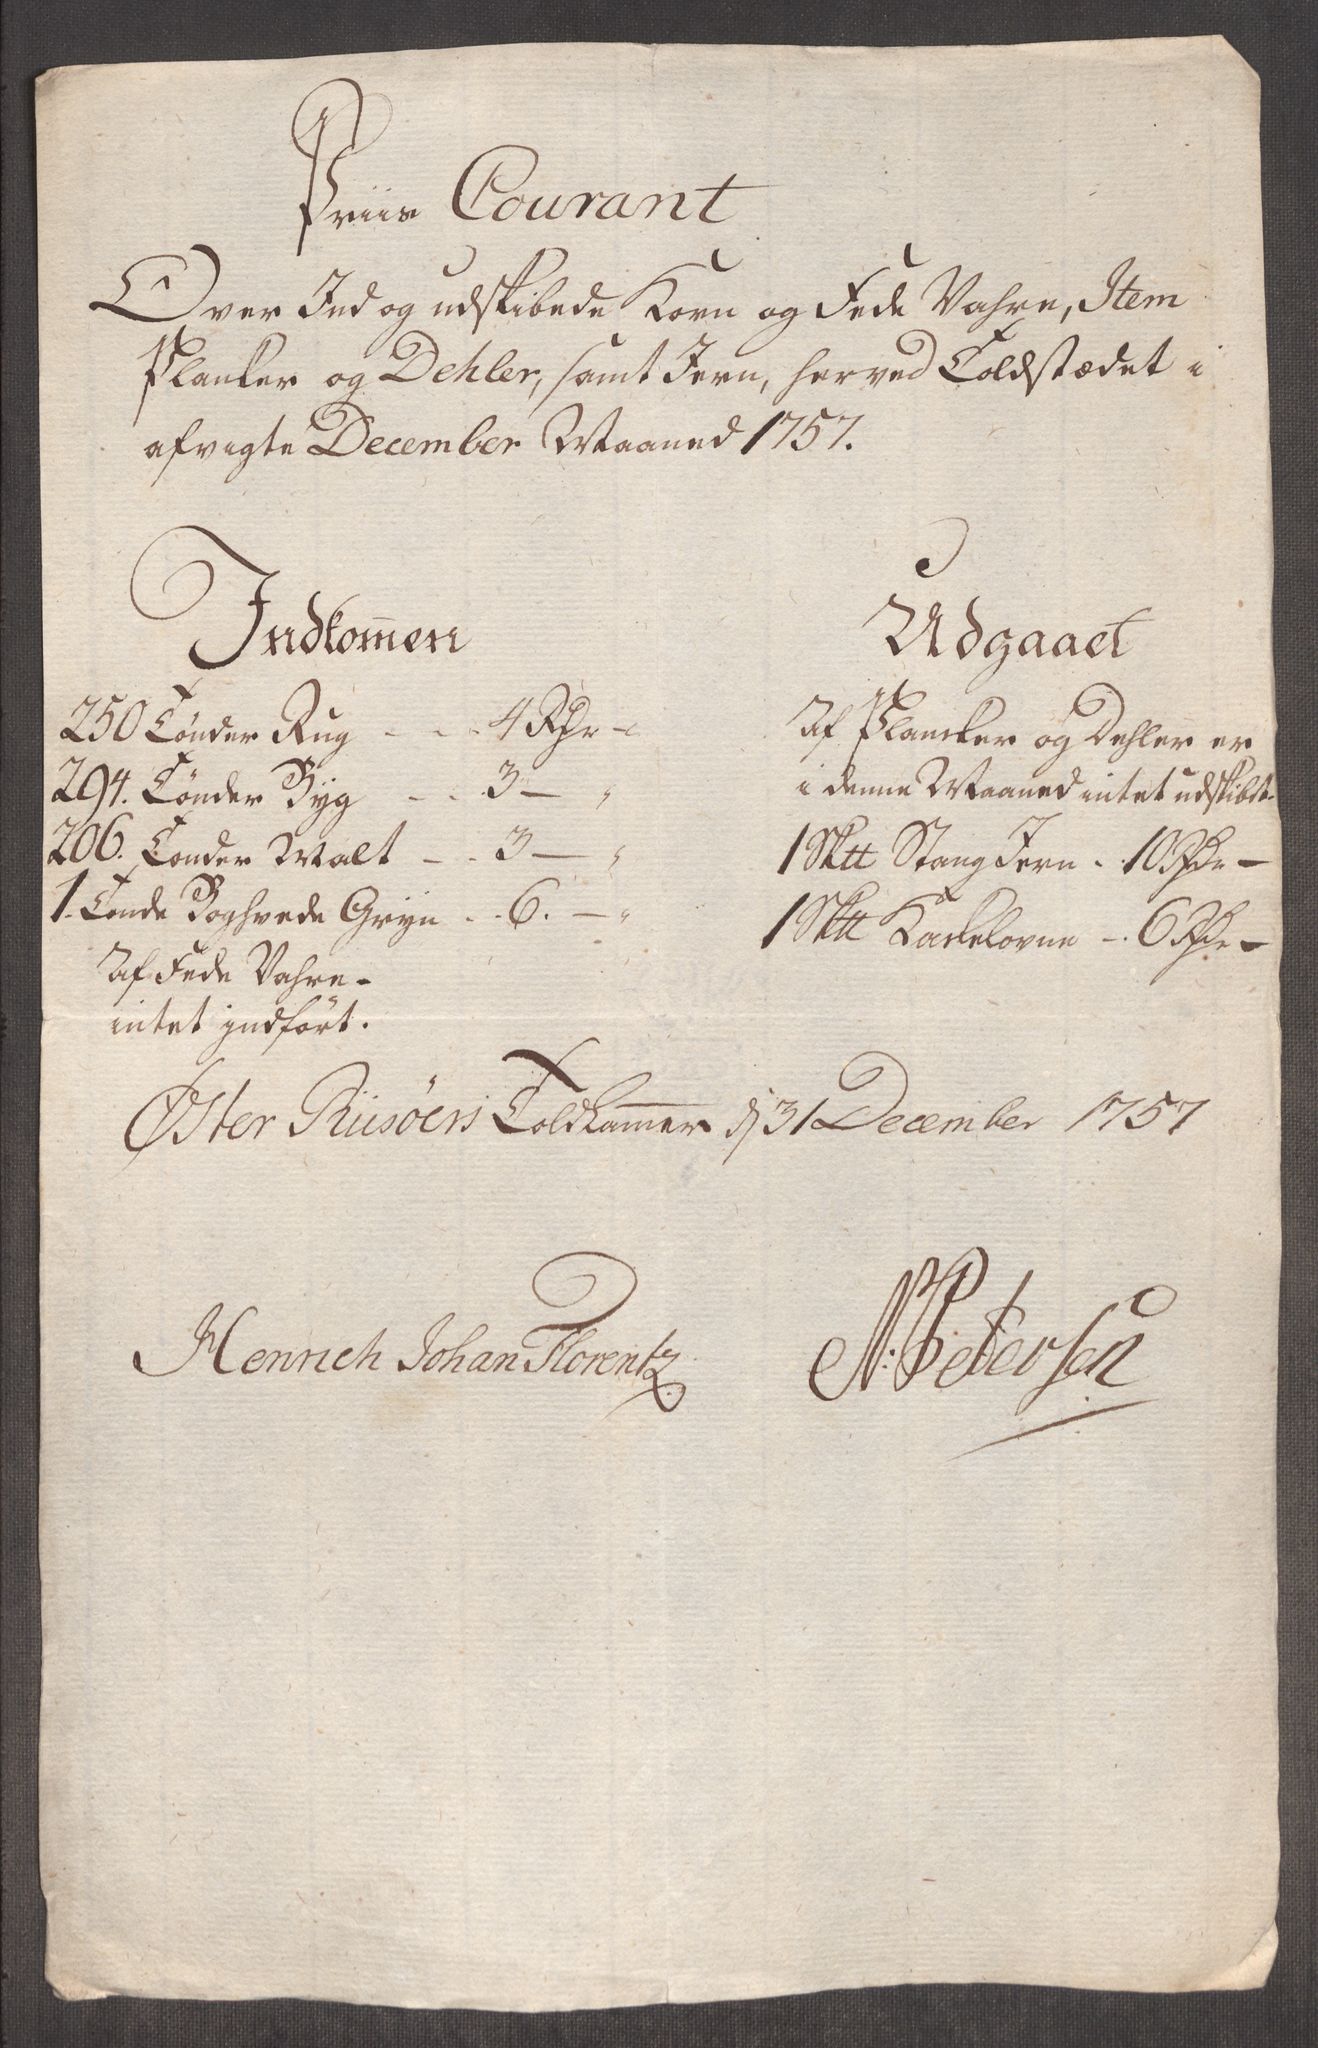 Priis Courant
Over Ind og udskibede Korn og Fede Vahre, Item
Plancker og Dehler, samt Jern, herved Toldstædet i
afvigte December Maaned 1757.
Indkom̄en
250 Tønder Rug - - - 4 Rdr -
294. Tønder Byg - - 3 — "
206. Tønder Malt - - 3 — "
1. Tønde Boghvede Gryn - - 6. — "
Af Fede Vahre -
intet indført.
Udgaaet
Af Plancker og Dehler er
i denne Maaned intet udskibt.
1 Sktt Stang Jern - 10 Rdr —
1 Sktt Kackelovne - 6 Rdr —
Øster Riisöers Toldkam̄er dj 31 December 1757
Henrich Johan Florentz
N: Petersen